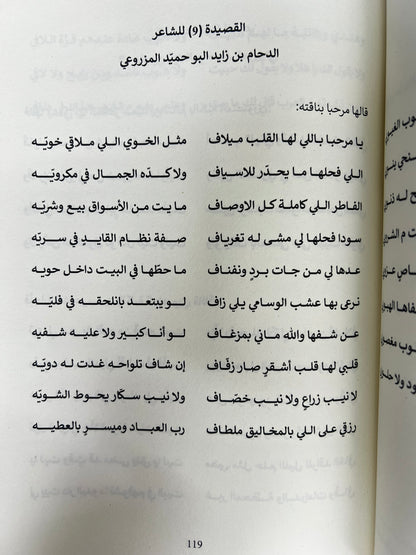 القصيدة (9) للشاعر
الدحام بن زايد البو حميّد المزروعي
قالها مرحبا بناقته:
يا مرحبا باللي لها القلب ميلاف مثل الخوي اللي ملاقي خويّه
اللي فحلها ما يحدّر للاسياف ولا كدّه الجمال في مكرويّه
الفاطر اللي كاملة كل الاوصاف ما يت من الأسواق بيع وشريّه
سودا فحلها لي مشى له تغرياف صفة نظام القايد في سريّه
عدها لي من جات بردٍ ونفناف ما حطّها في البيت داخل حويه
نرعى بها عشب الوسامي يلي زاف لو يبتعد بانلحقه في فليّه
عن شفها والله ماني بمزغاف لو أنا كبير ولا عليه شفيه
قلبي لها قلب أشقرٍ صار زفّاف إن شاف تلواحه غدت له دويّه
لا نيب زراعٍ ولا نيب خصّاف ولا نيب سكّار يحوط الشويّه
رزقي على اللي بالمخاليق ملطاف رب العباد وميسرٍ بالعطيه
119